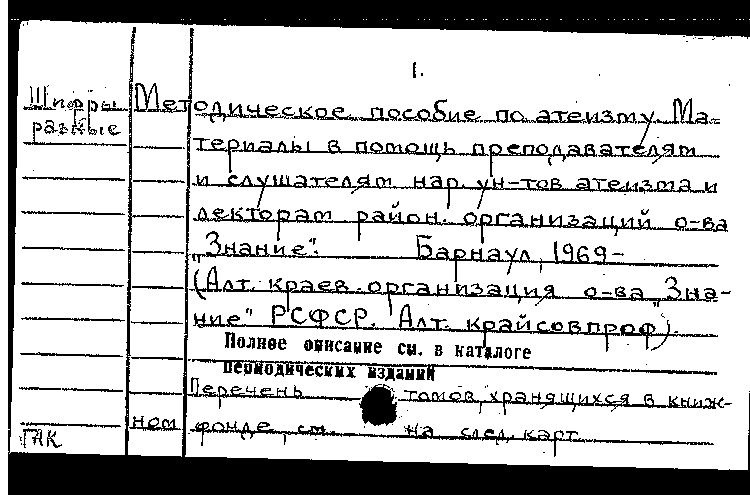 1.
Шифры разные
Методическое пособие по атеизму. Ма-
териалы в помощь преподавателям
и слушателям нар. ун-тов атеизма и
лекторам район. организаций о-ва
„Знание". Барнаул, 1969-
(Алт. краев. организация о-ва „Зна-
ние" РСФСР. Алт. крайсовпроф).
Полное описание см. в каталоге
периодических изданий
Перечень томов, хранящихся в книж-
ном фонде, см. на след. карт.
ГАК